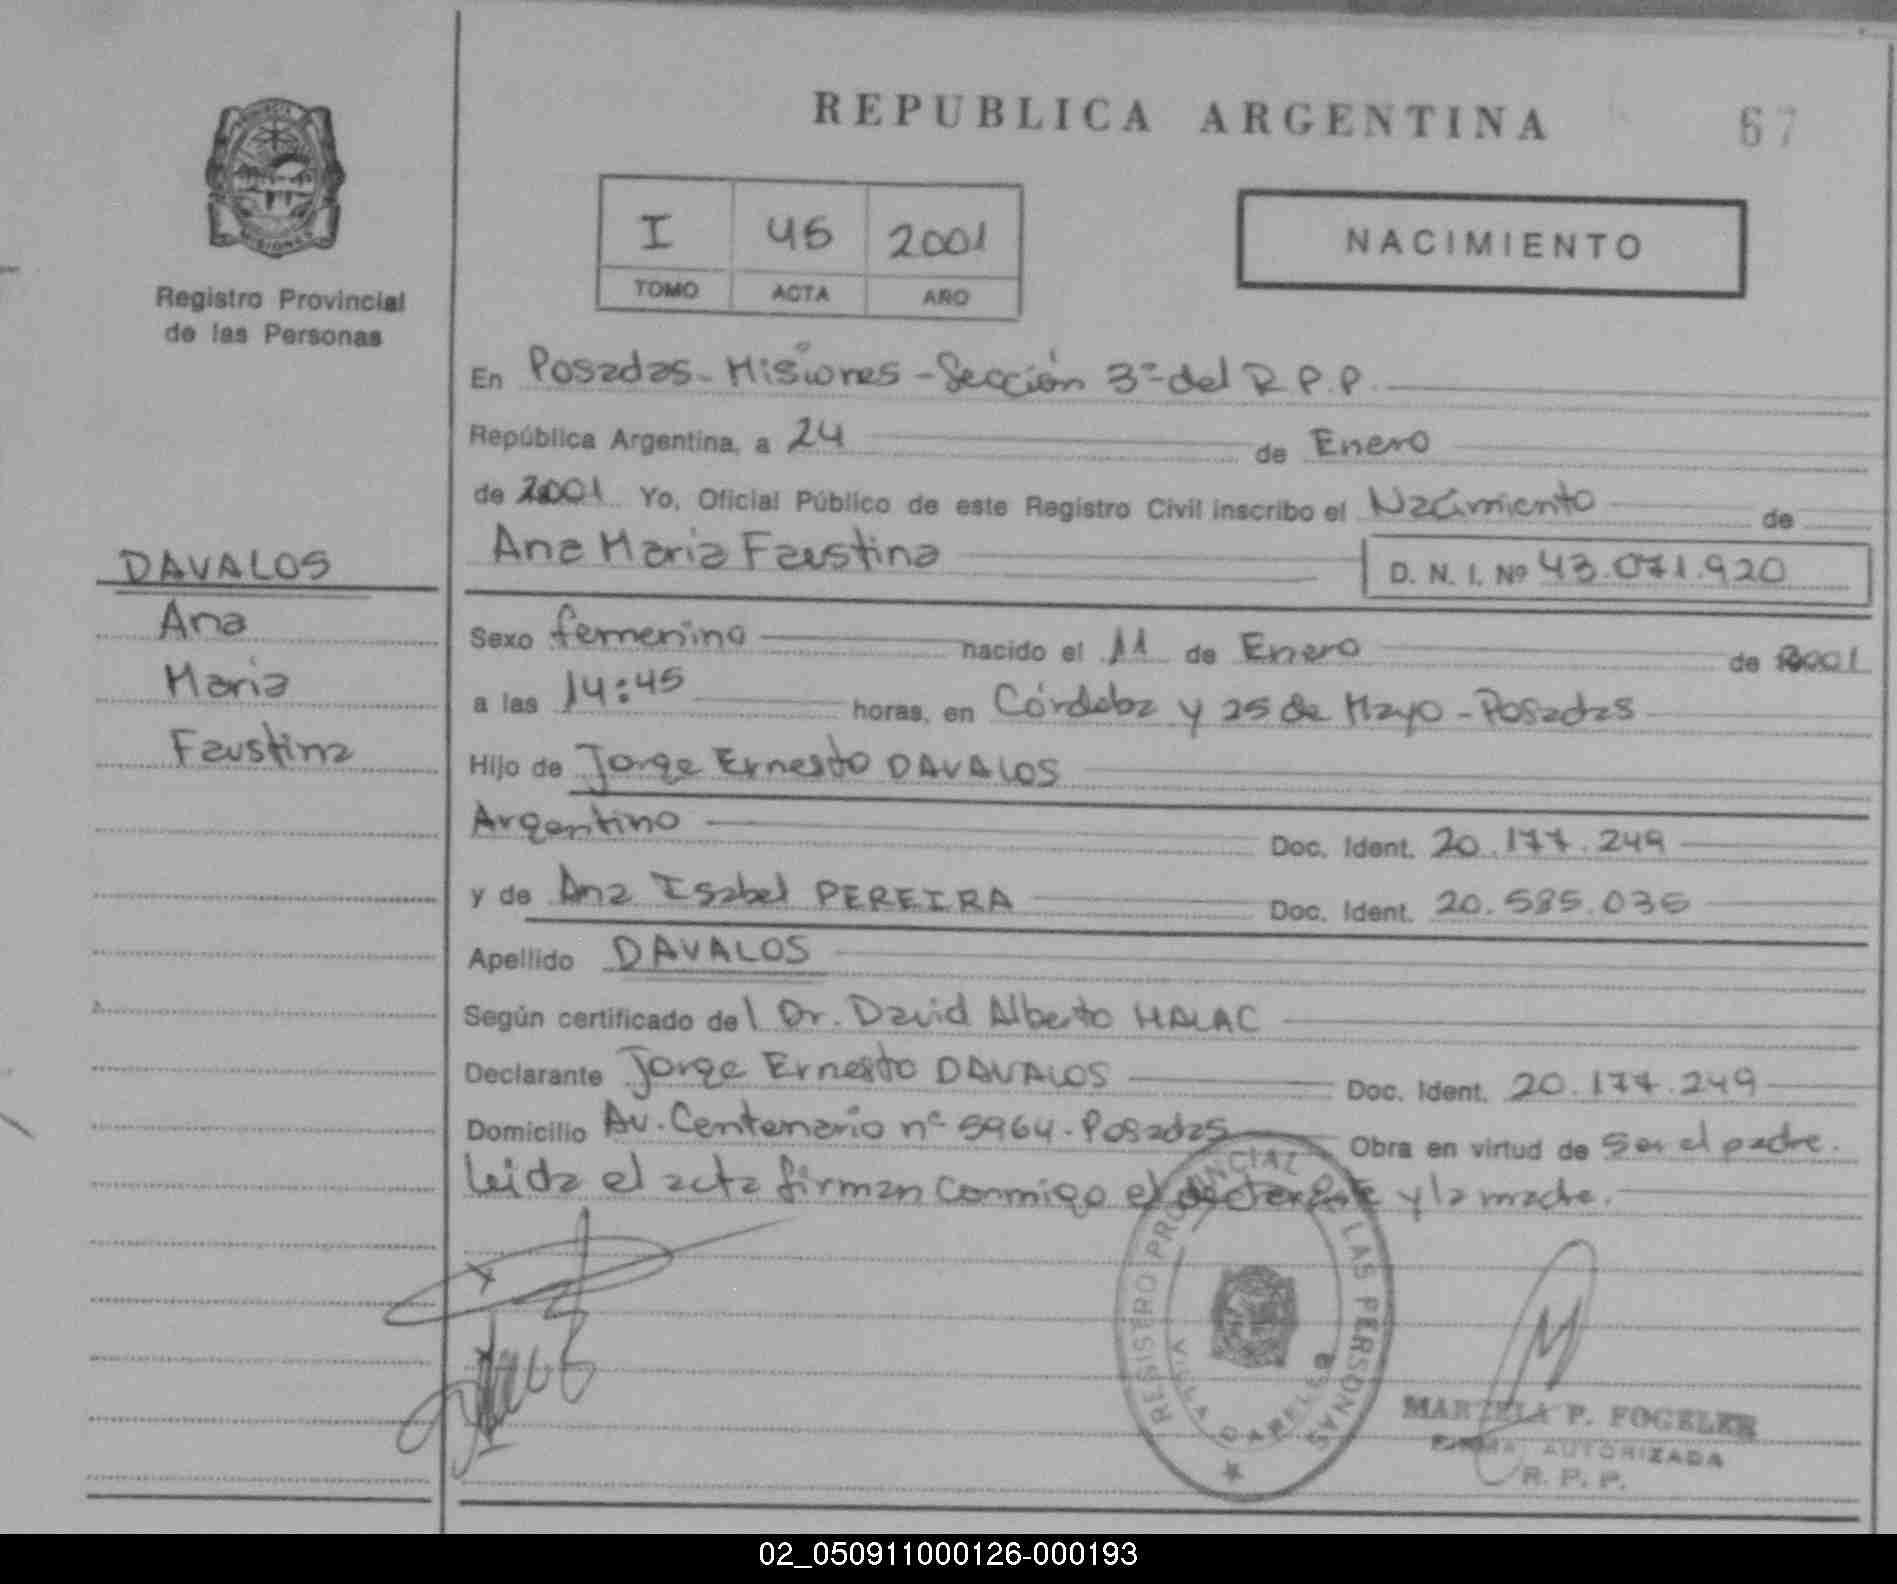 REPUBLICA ARGENTINA
67
I 45 2001
TOMO ACTA AÑO
NACIMIENTO
MISIONES
Registro Provincial
de las Personas
En Posadas - Misiones - Sección 3ª del R.P.P.
República Argentina, a 24 de Enero
de 2001 Yo, Oficial Público de este Registro Civil inscribo el Nacimiento de
Ana Maria Faustina D. N. I. Nº 43.071.920
DAVALOS
Ana
Maria
Faustina
Sexo femenino nacido el 11 de Enero de 2001
a las 14:45 horas, en Córdoba y 25 de Mayo - Posadas
Hijo de Jorge Ernesto DAVALOS
Argentino Doc. Ident. 20.177.249
y de Ana Isabel PEREIRA Doc. Ident. 20.585.036
Apellido DAVALOS
Según certificado del Dr. David Alberto HALAC
Declarante Jorge Ernesto DAVALOS Doc. Ident. 20.177.249
Domicilio Av. Centenario nº 5964 - Posadas Obra en virtud de ser el padre.
Leida el acta firman conmigo el declarante y la madre.
REGISTRO PROVINCIAL DE LAS PERSONAS
P. FOGELER
FIRMA AUTORIZADA
R. P. P.
02_050911000126-000193